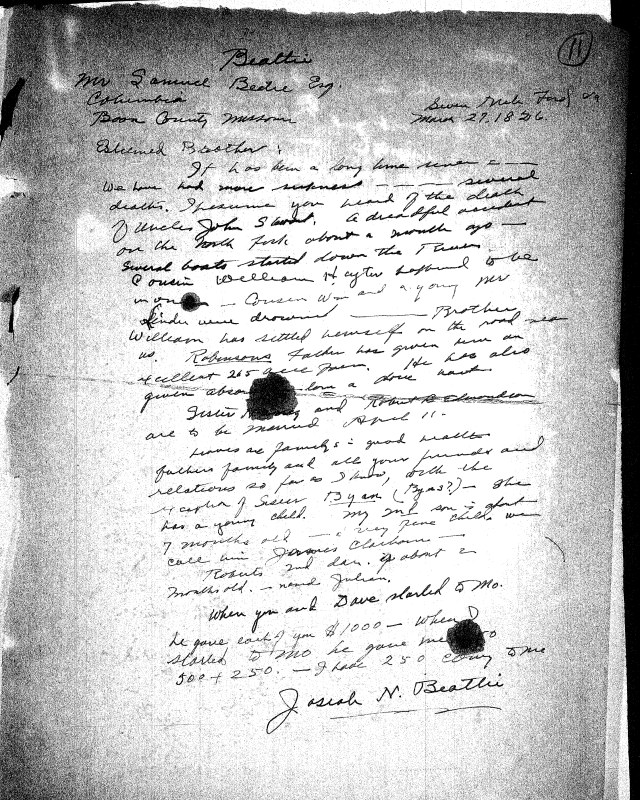 11
Beattie
Mr Samuel Beatie Esq.
Columbia
Boon County Missouri
Seven Mile Ford, Va
March 27, 1826.
Esteemed Brother:
It has been a long time since a ——
We have had more sickness — — — — several
deaths. I presume you heard of the death
of Uncles John Stout. A dreadful accident
on the North Fork about a month ago —
Several boats started down the River.
Cousin William Hayter happened to be
in one — Cousin Wm and a young Mr
were drowned ——— Brother
William has settled himself on the road near
us. Robinsons father has given him an
excellent 265 acre farm. He has also
given
Sister and Robert B. Edmondson
are to be married April 11.
family = good health
fathers family and all your friends and
relations so far as I know, with the
exception of Sister Byan (Byas?) — She
has a young child. My 2nd son is about
7 months old — a very fine child. We
call him James Claiborne —
Roberts 2nd dau. is about 2
months old. — named Julian.
When you and Dave started to Mo.
he gave each of you $1000 — When I
started to Mo he gave me
500 + 250. — I have 250 coming to me
Josiah N. Beattie